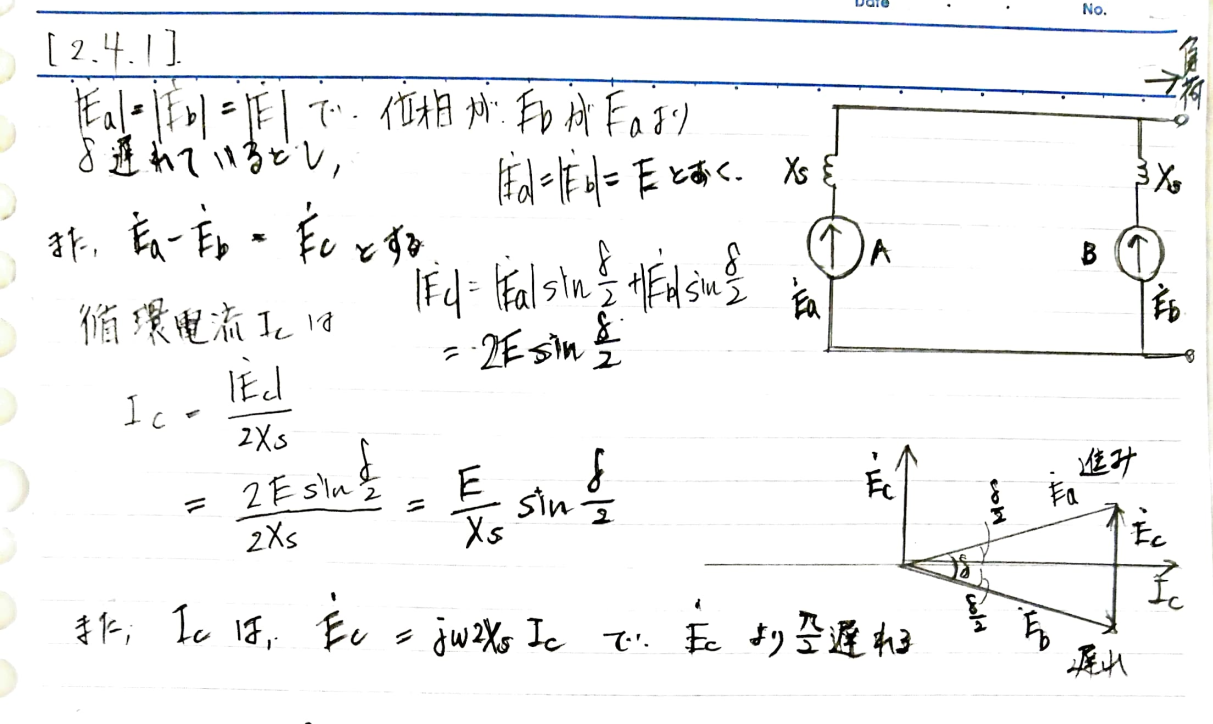 Date
No.
[2.4.1].
|Ėa|=|Ėb|=|Ė| で. 位相が. Ėb が Ėa より
δ遅れているとし,
|Ėa|=|Ėb|= E とおく.
また, Ėa-Ėb = Ėc とする
|Ėc| = |Ėa| sin δ/2 + |Ėb| sin δ/2
= 2E sin δ/2
循環電流 Ic は
Ic = |Ėc| / 2Xs
= 2E sin δ/2 / 2Xs = E/Xs sin δ/2
また, Ic は, Ėc = jω2Xs Ic で. Ėc より π/2 遅れる
→ 負荷
Xs
Xs
A
B
Ėa
Ėb
Ėc
δ/2
Ėa
進み
Ėc
δ
İc
δ/2
Ėb
遅れ